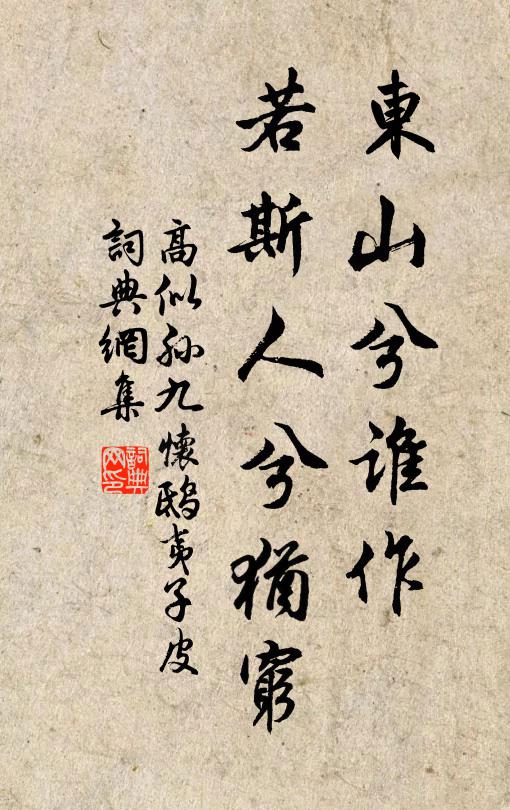 東山兮誰作
若斯人兮猶窮
高似孫九懷鴟夷子皮
詞典網集
詞典網印